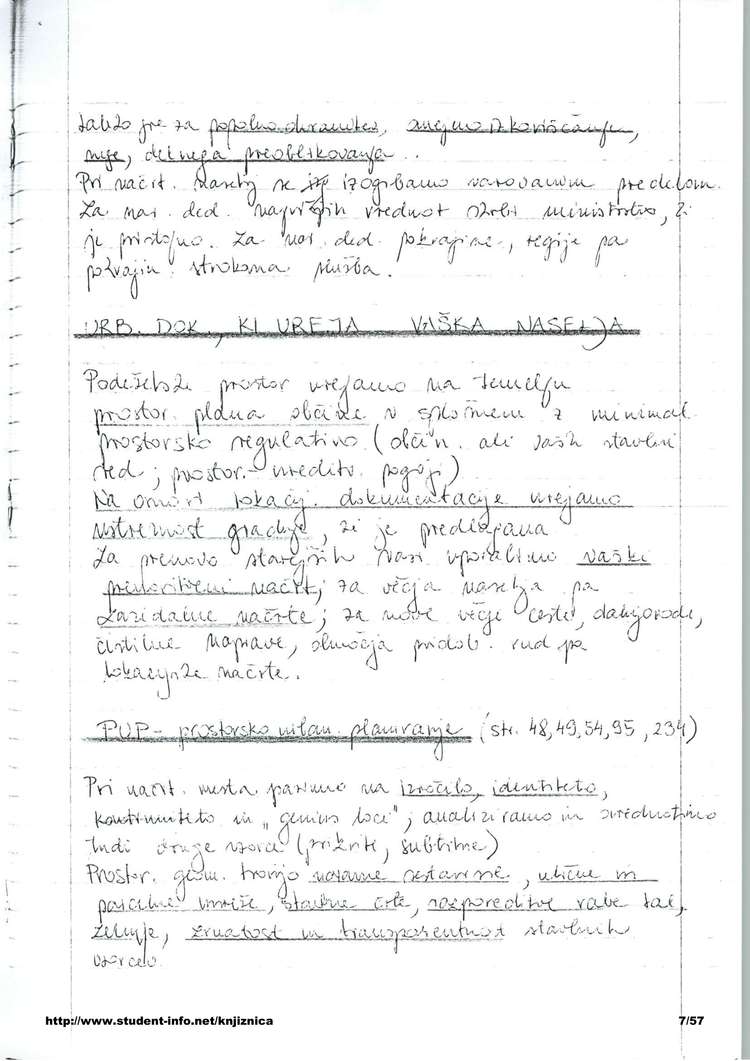 lahko gre za popolno ohranitev, omejeno izkoriščanje,
nije, delnega preoblikovanja ..
Pri načrt. naselij se izogibamo varovanim predelom.
Za nar. ded. največjih vrednot skrbi ministrstvo, ki
je pristojno. Za nar. ded. pokrajine, regije pa
pokrajin. strokovna služba.
URB. DOK., KI UREJA VAŠKA NASELJA
Podeželski prostor urejamo na temelju
prostor. plana občine v splošnem z minimal.
prostorsko regulativo (občin. ali vaški stavbni
red; prostor.-ureditv. pogoji)
Na osnovi lokacij. dokumentacije urejamo
ustreznost gradnje, ki je predlagana
Za prenovo starejših vasi uporabimo vaški
ureditveni načrt; za večja naselja pa
zazidalne načrte; za nove večje ceste, daljnovode,
čistilne naprave, območja pridob. rud pa
lokacijske načrte.
PUP- prostorsko urban. planiranje (str. 48,49,54,95, 234)
Pri načrt. mesta pazimo na izročilo, identiteto,
kontinuiteto in "genius loci"; analiziramo in ovrednotimo
tudi druge vzorce (prikrite, subtilne)
Prostor. geom. tvorijo naravne sestavine, ulične in
parcelne mreže, stavbne črte, razporeditve rabe tal,
zelenje, zrnatost in transparentnost stavbnih
vzorcev.
http://www.student-info.net/knjiznica 7/57